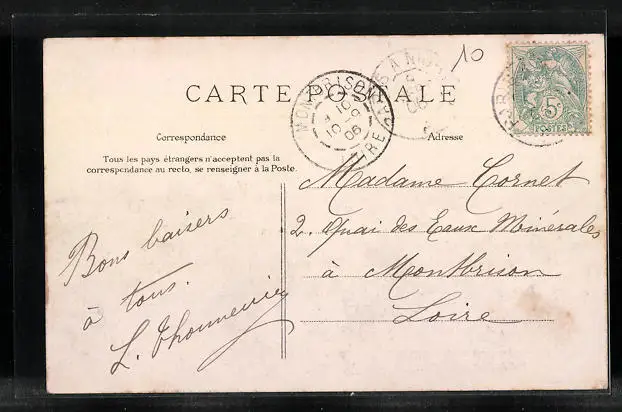 10
CARTE POSTALE
MONTBRISON
10
10 -9
06
5c
POSTES
Correspondance
Adresse
Tous les pays étrangers n'acceptent pas la
correspondance au recto, se renseigner à la Poste.
Madame Cornet
2. Quai des Eaux Minérales
à Montbrison
Loire
Bons baisers
à tous.
L.